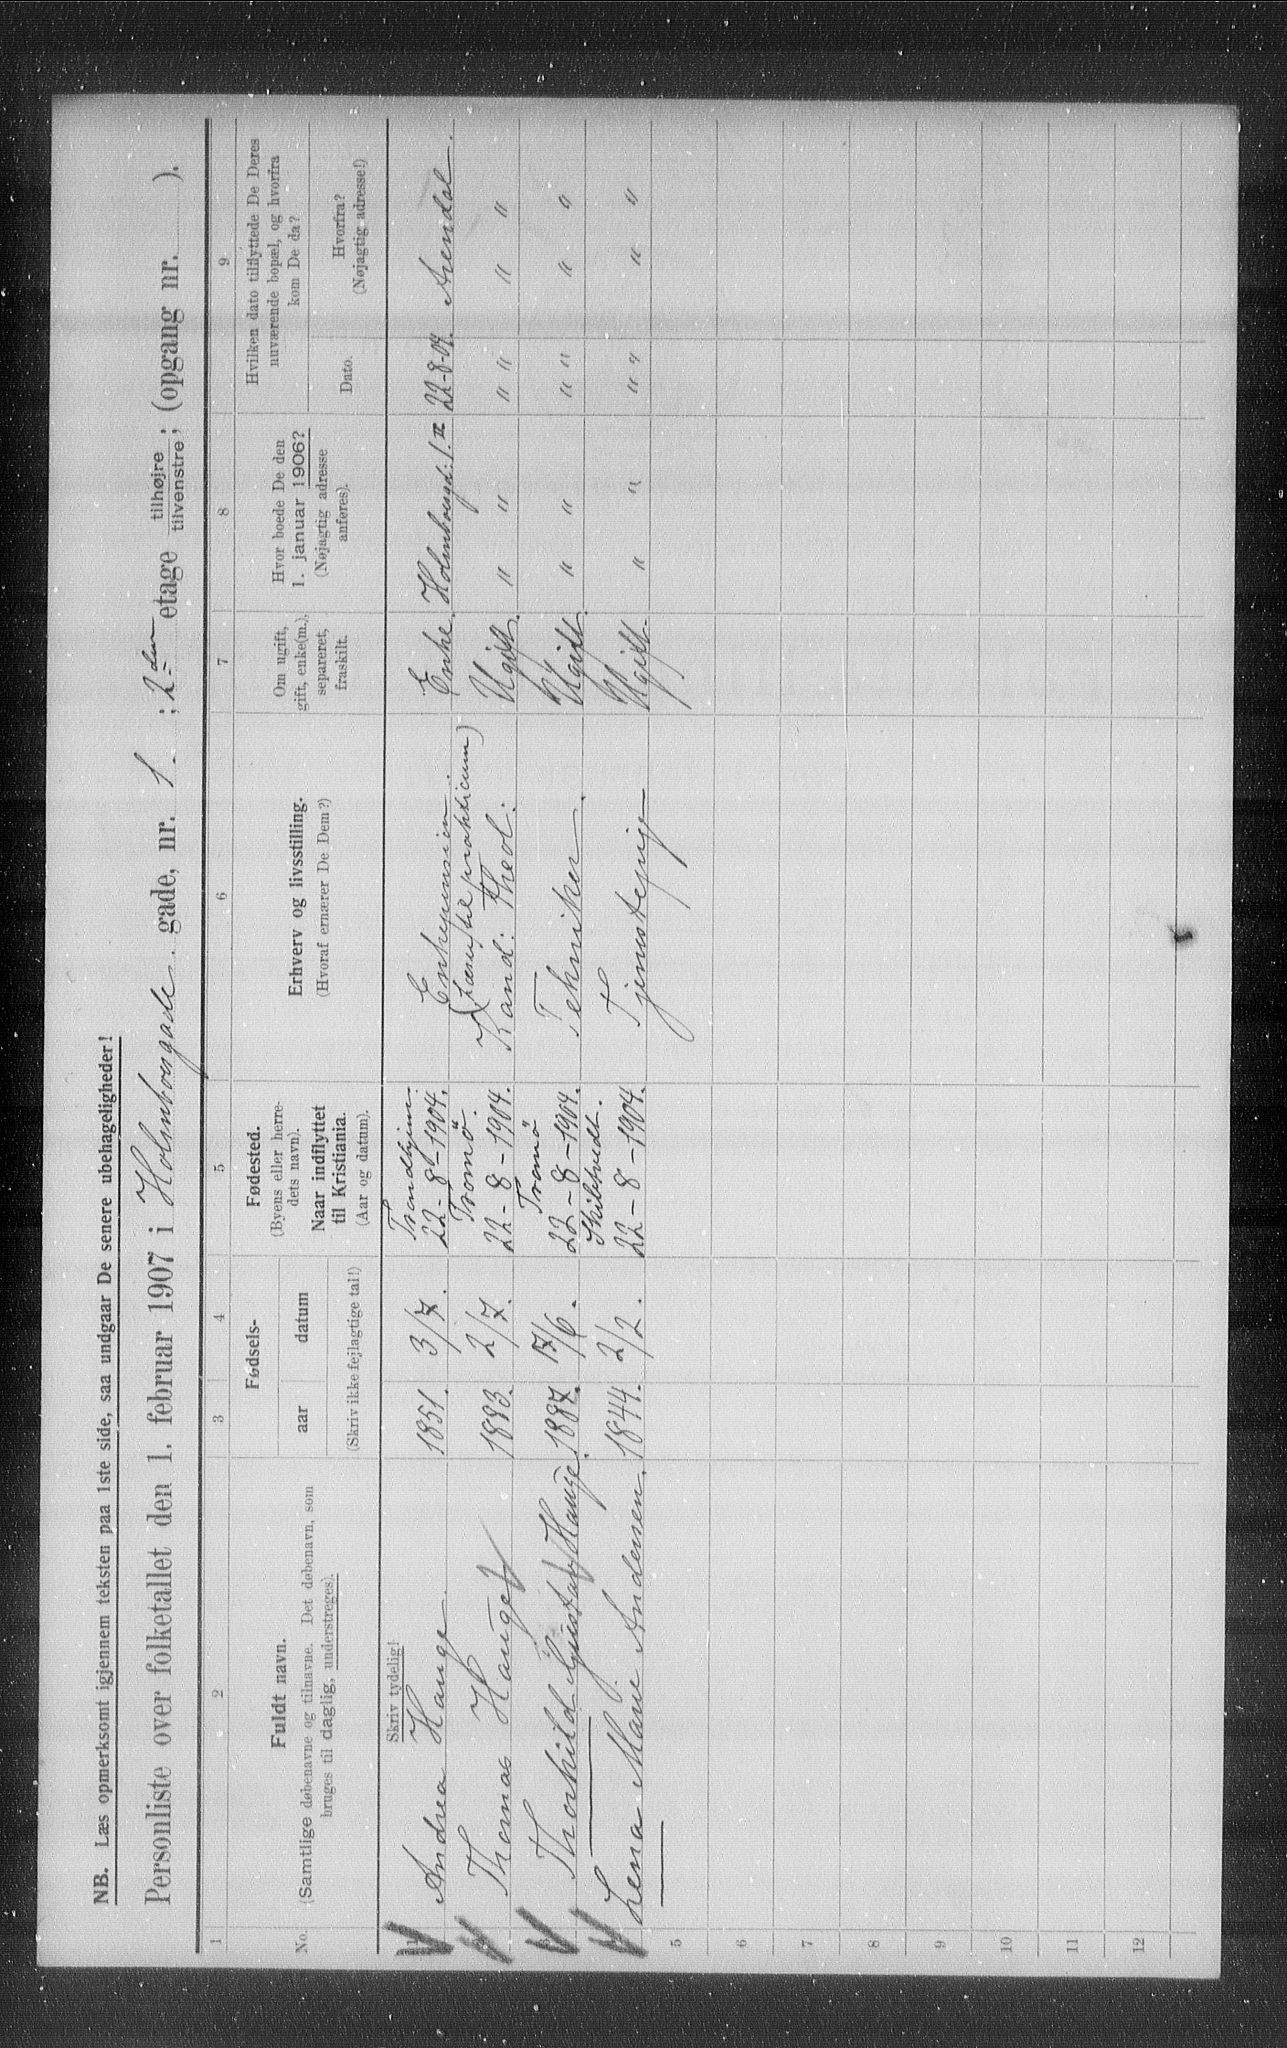 NB. Læs opmerksomt igjennem teksten paa 1ste side, saa undgaar De senere ubehageligheder!
Personliste over folketallet den 1. februar 1907 i Holmboesgade gade, nr. 1. ; 2den etage tilhøjre ; tilvenstre; (opgang nr. ).
1 2 3 4 5 6 7 8 9
No. Fuldt navn. (Samtlige døbenavne og tilnavne. Det døbenavn, som bruges til daglig, understreges).
Fødsels- aar datum (Skriv ikke fejlagtige tal!)
Fødested. (Byens eller herredets navn). Naar indflyttet til Kristiania. (Aar og datum).
Erhverv og livsstilling. (Hvoraf ernærer De Dem?)
Om ugift, gift, enke(m.), separeret, fraskilt.
Hvor boede De den 1. januar 1906? (Nøjagtig adresse anføres).
Hvilken dato tilflyttede De Deres nuværende bopæl, og hvorfra kom De da?
Dato. Hvorfra? (Nøjagtig adresse!)
Skriv tydelig!
1 Andrea Hauge. 1851. 3/7. Trondhjem. 22-8-1904. Enkepension. Enke. Holmboesgd: 1. II 22-8-04. Arendal.
Thomas Hauge 1883. 2/7. Tromö. 22-8-1904. (Læser til praktikum) Kand: Theol: Ugift. " " " " " "
3 Thorkild Gustav Hauge. 1887. 17/6. Tromö 22-8-1904. Tekniker. Ugift. " " " " " "
Lena Marie Andersen. 1844. 2/2. 22-8-1904. Tjenstepige Ugift. " " " " " "
5
6
7
8
9
10
11
12